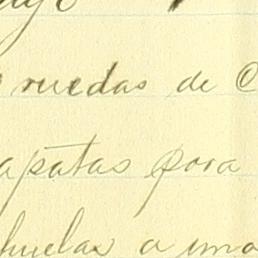 ruedas de
apatas para
huelas a una